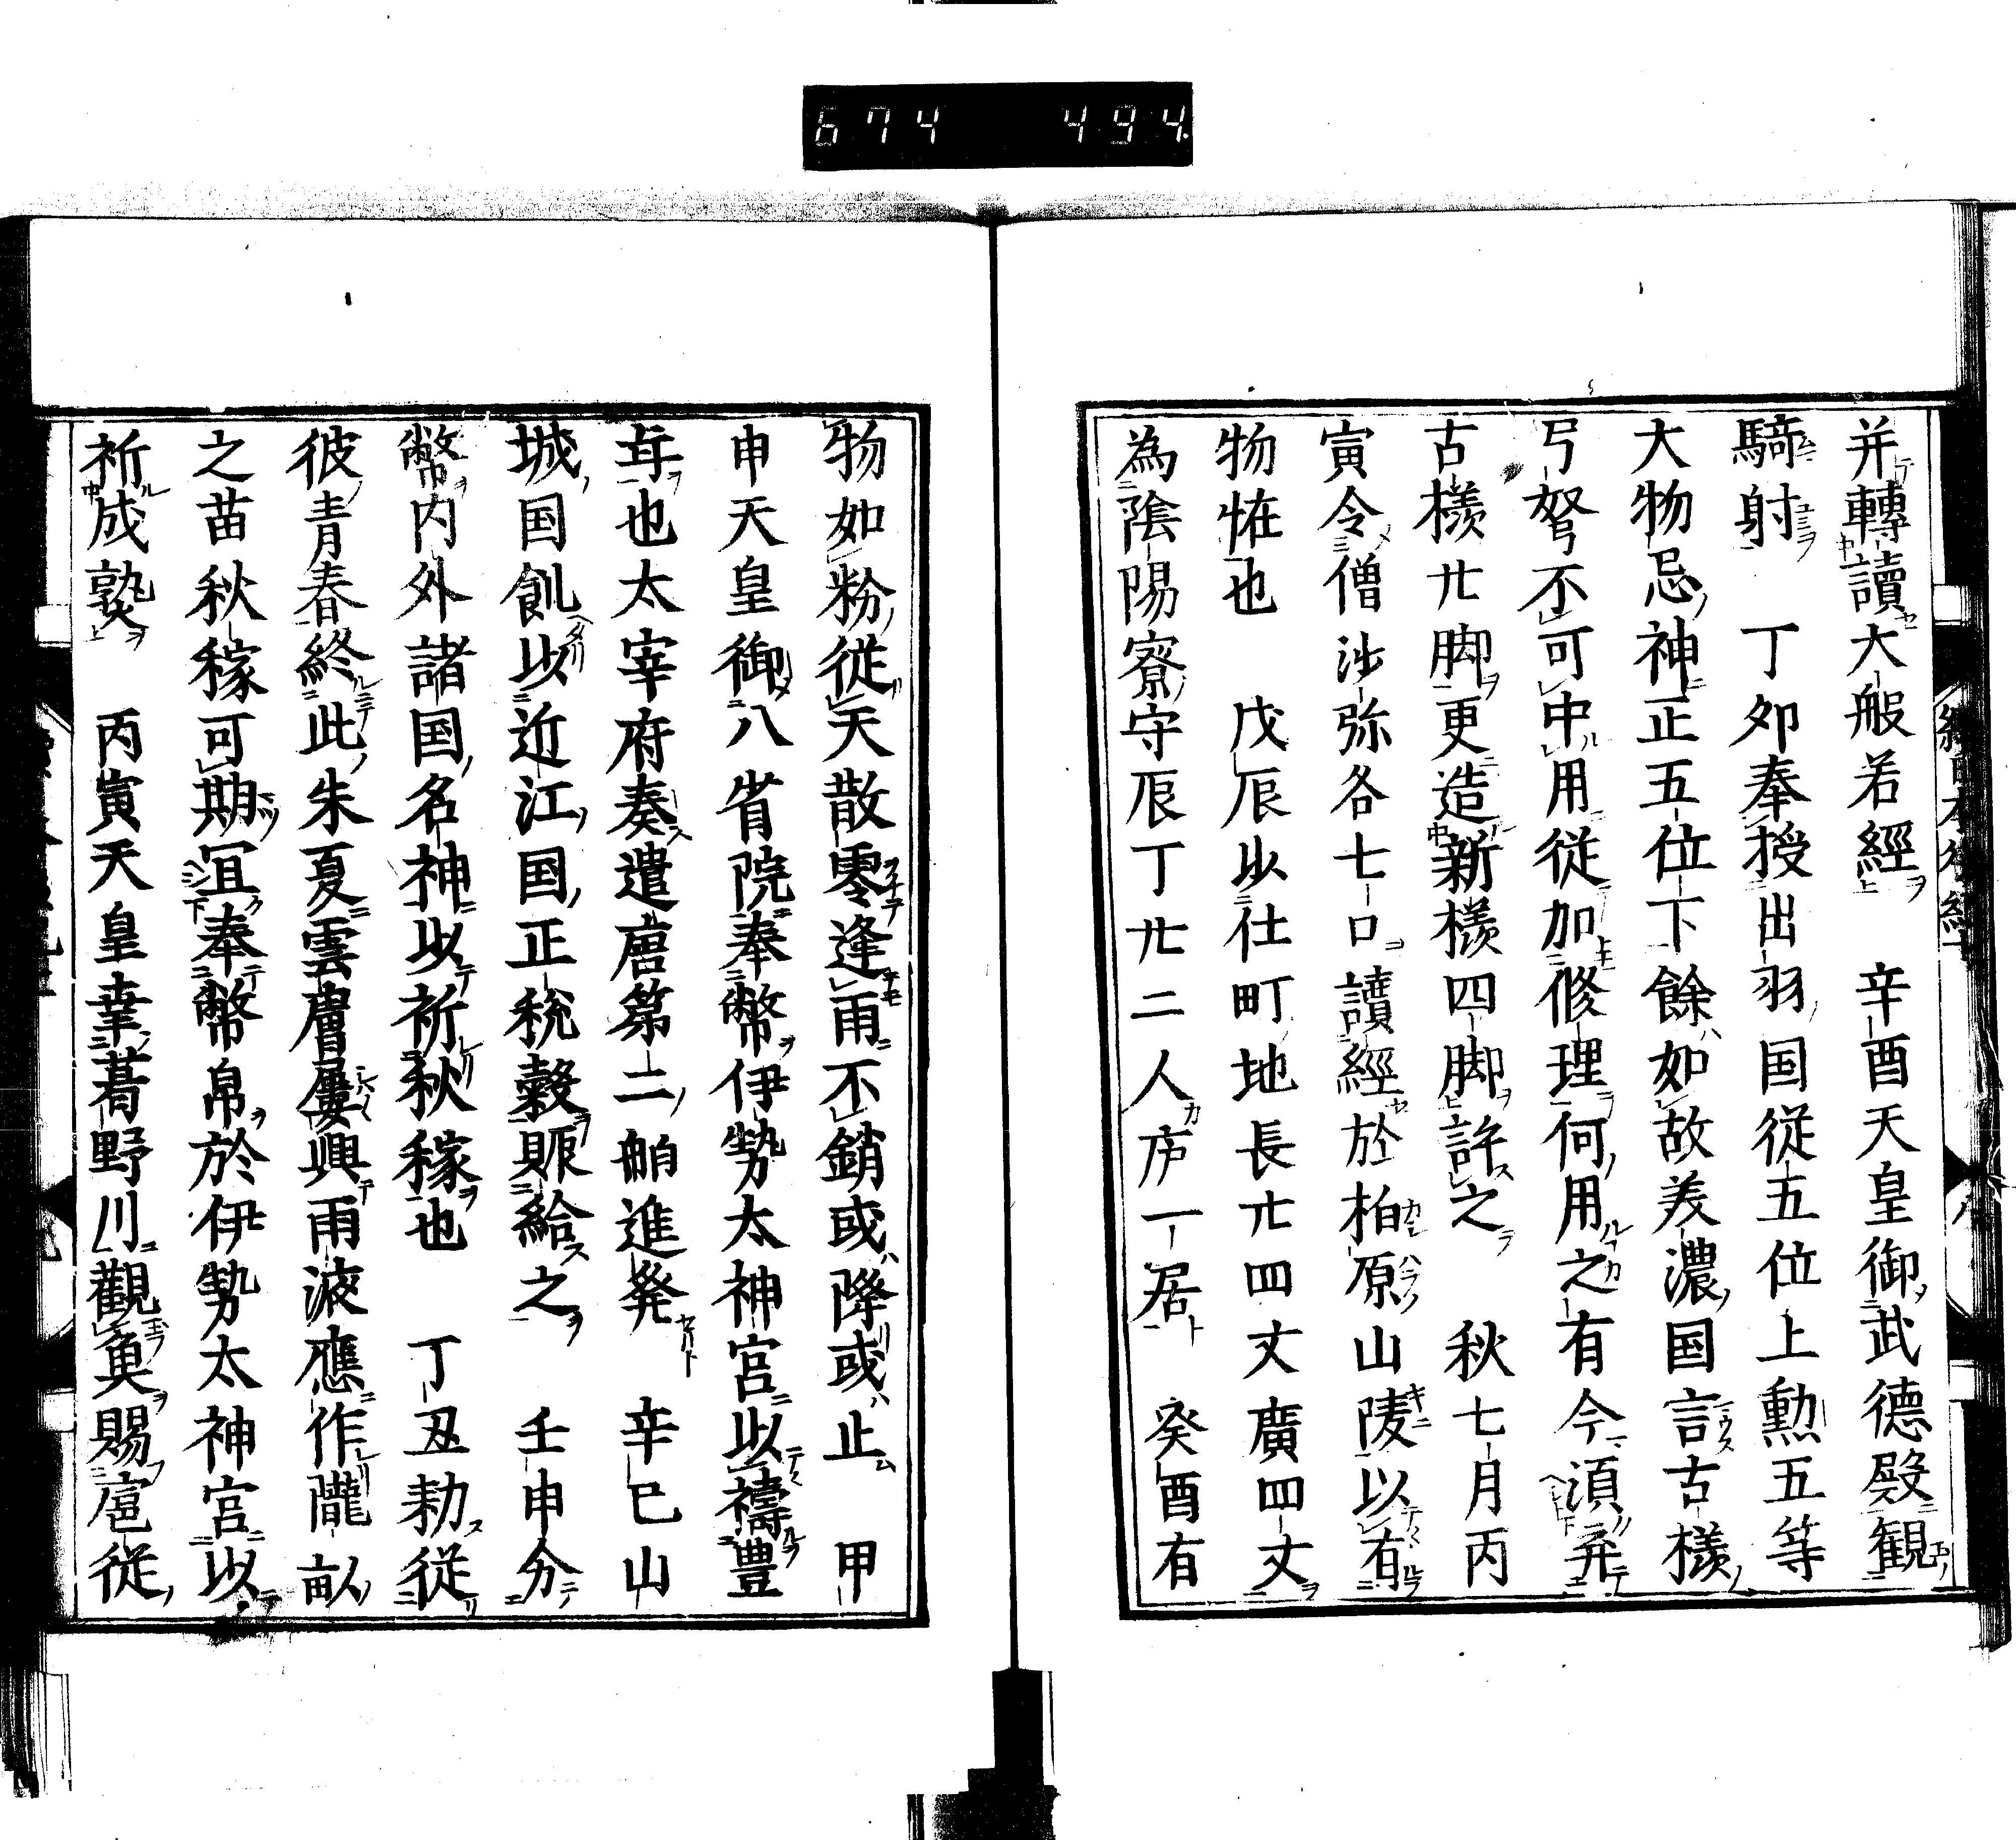 674 494
并轉讀大般若經　辛酉天皇御武德殿觀
騎射　丁夘奉授出羽国從五位上勲五等
大物忌神正五位下餘如故美濃国言古樣
弓弩不可中用從加修理何用之有今須弃
古樣廿脚更造新樣四脚許之　秋七月丙
寅令僧沙弥各七口讀經於柏原山陵以有
物恠也　戊辰以仕町地長廿四丈廣四丈
為陰陽寮守辰丁廿二人庐一居　癸酉有
物如粉從天散零逢雨不銷或降或止　甲
申天皇御八省院奉幣伊勢太神宮以禱豊
年也太宰府奏遣唐第二舶進発　辛巳山
城国飢以近江国正税穀賑給之　壬申分
幣内外諸国名神以祈秋稼也　丁丑勅從
彼青春終此朱夏雲膚屢興雨液應作隴畝
之苗秋稼可期宜奉幣帛於伊勢太神宮以
祈成熟　丙寅天皇幸葛野川觀魚賜扈從